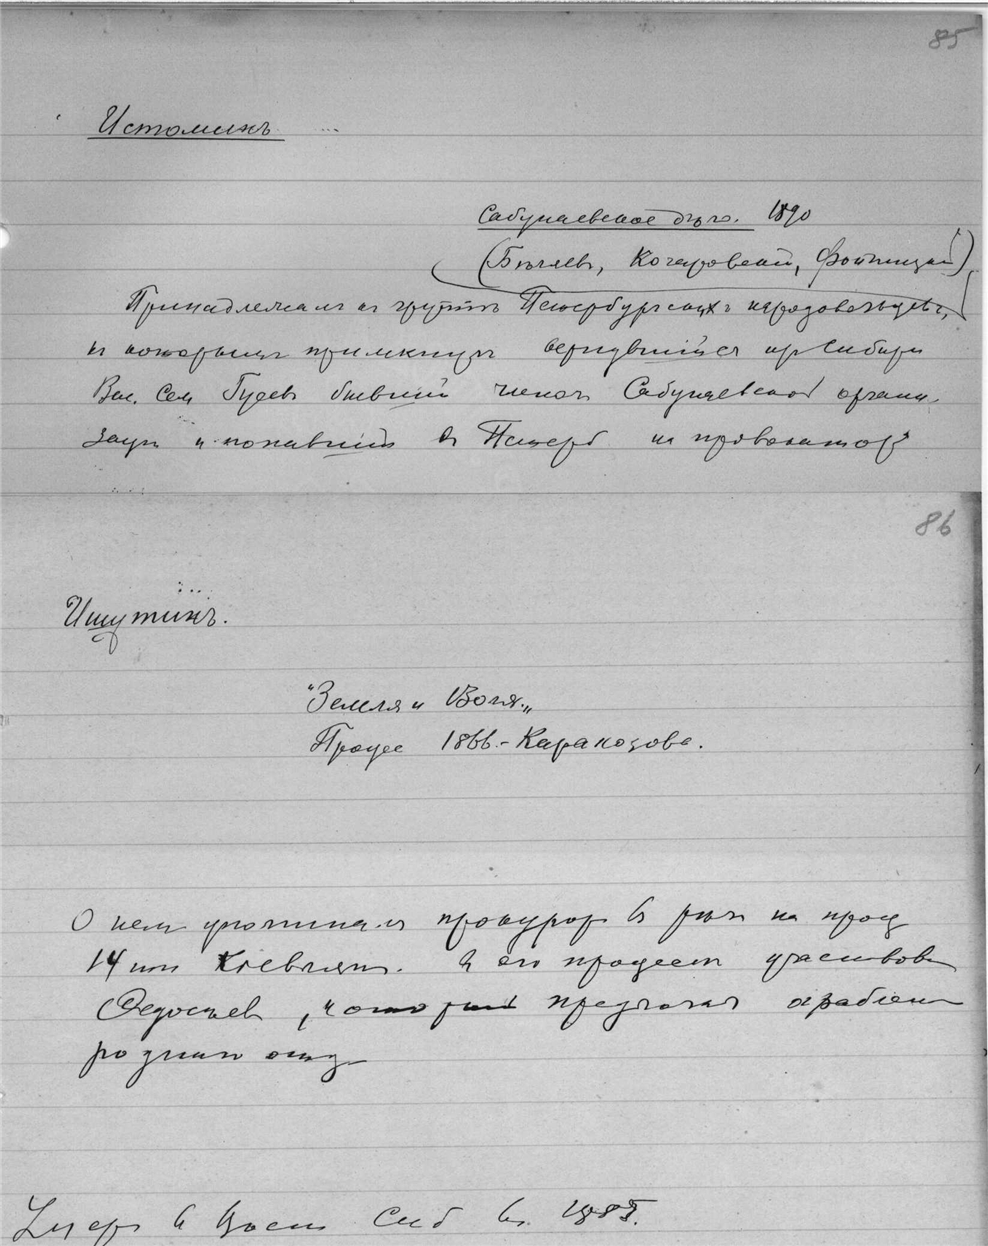 85
Истоминъ
Сабунаевское дѣло. 1890
(Бѣляевъ, Кочаровский, Фойницкий)
Принадлежалъ къ группѣ Петербургскихъ народовольцевъ,
к которымъ примкнулъ вернувшийся из Сибири
Вас. Сем Гусевъ бывший членъ Сабунаевской органи-
зации и попавший въ Петерб на провокатора
86
Ишутинъ.
"Земля и Воля"
Процес 1866.- Каракозова.
О нем упоминалъ прокурор в речи на проц
14 ти Киевлян. В его процессе участвовал
Федосеев, который предлагал ограбление
родного отца
Умер в Вост Сиб въ